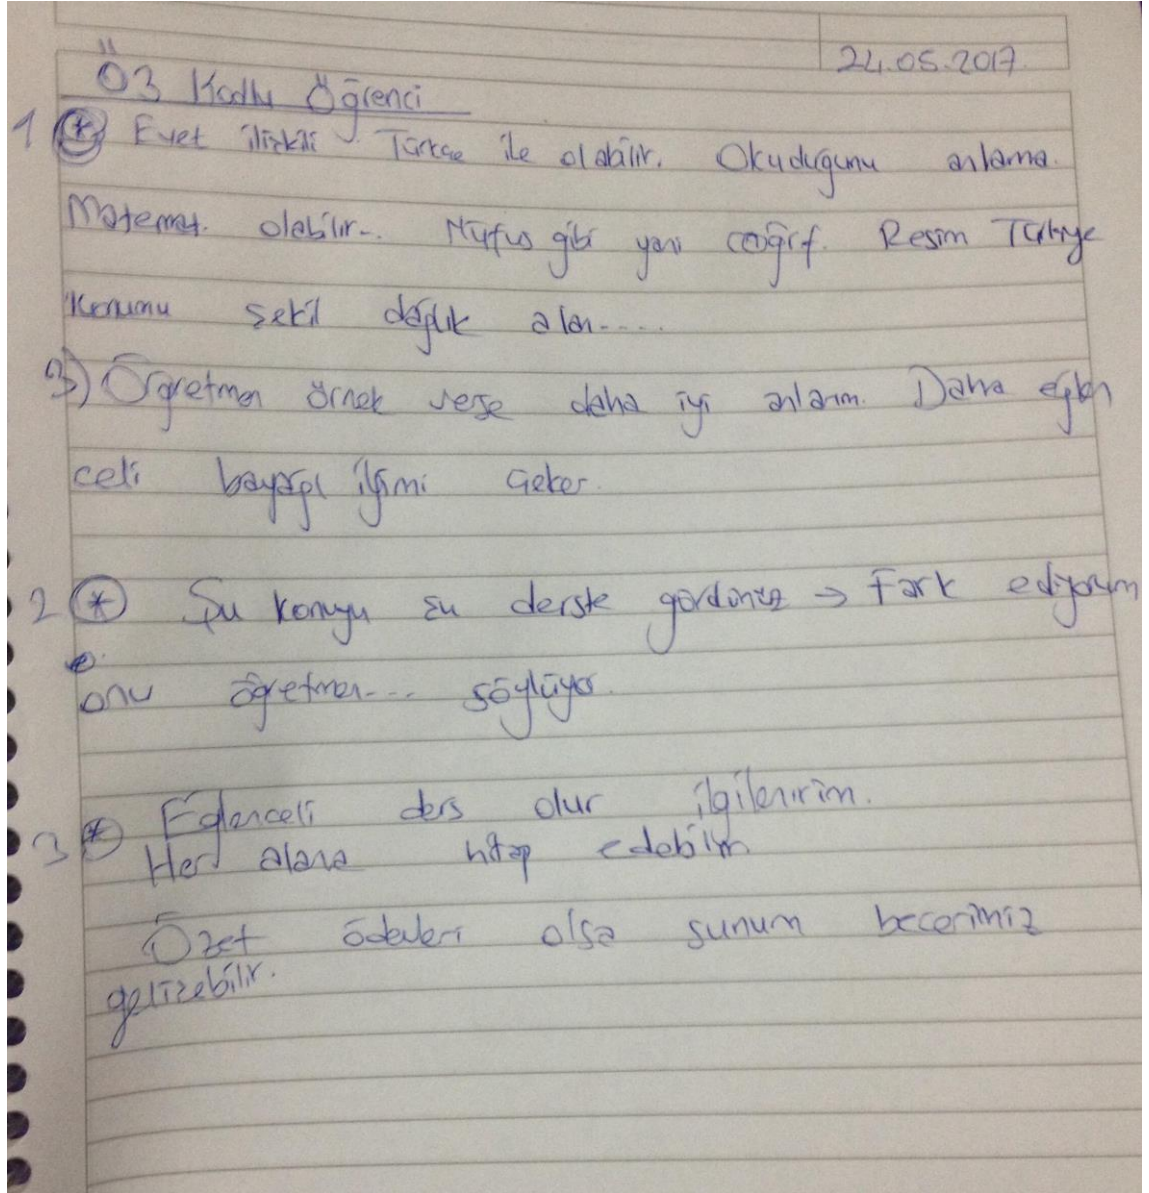 24.05.2017
Ö3 Kodlu Öğrenci
1 * Evet ilişkili. Türkçe ile olabilir. Okuduğunu anlama.
Matemat. olabilir.. Nüfus gibi yani coğrf. Resim Türkiye
Konumu şekil dağlık alan....
3) Öğretmen örnek verse daha iyi anlarım. Daha eğlen
celi bayağı ilgimi çeker.
2 * Şu konuyu şu derste gördünüz → Fark ediyorum
onu öğretmen.... söylüyor.
3 * Eğlenceli ders olur ilgilenirim.
Her alana hitap edebilir.
Özet ödevleri olsa sunum becerimiz
gelişebilir.